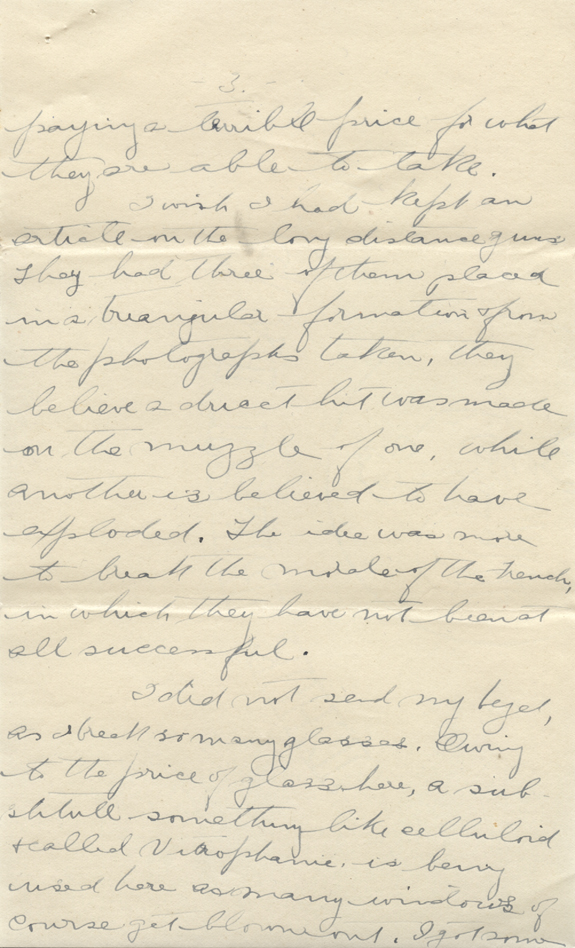 - 3. -
paying a terrible price for what
they are able to take.
I wish I had kept an
article on the long distance guns
They had three of them placed
in a triangular formation & from
the photographs taken, they
believe a direct hit was made
on the muzzle of one, while
another is believed to have
exploded. The idea was more
to break the morale of the French,
in which they have not been at
all successful.
I did not send my bezel,
as I break so many glasses. Owing
to the price of glass here, a sub-
stitute something like celluloid
& called Vitrophanie. is being
used here as many windows of
course get blown out. I got some